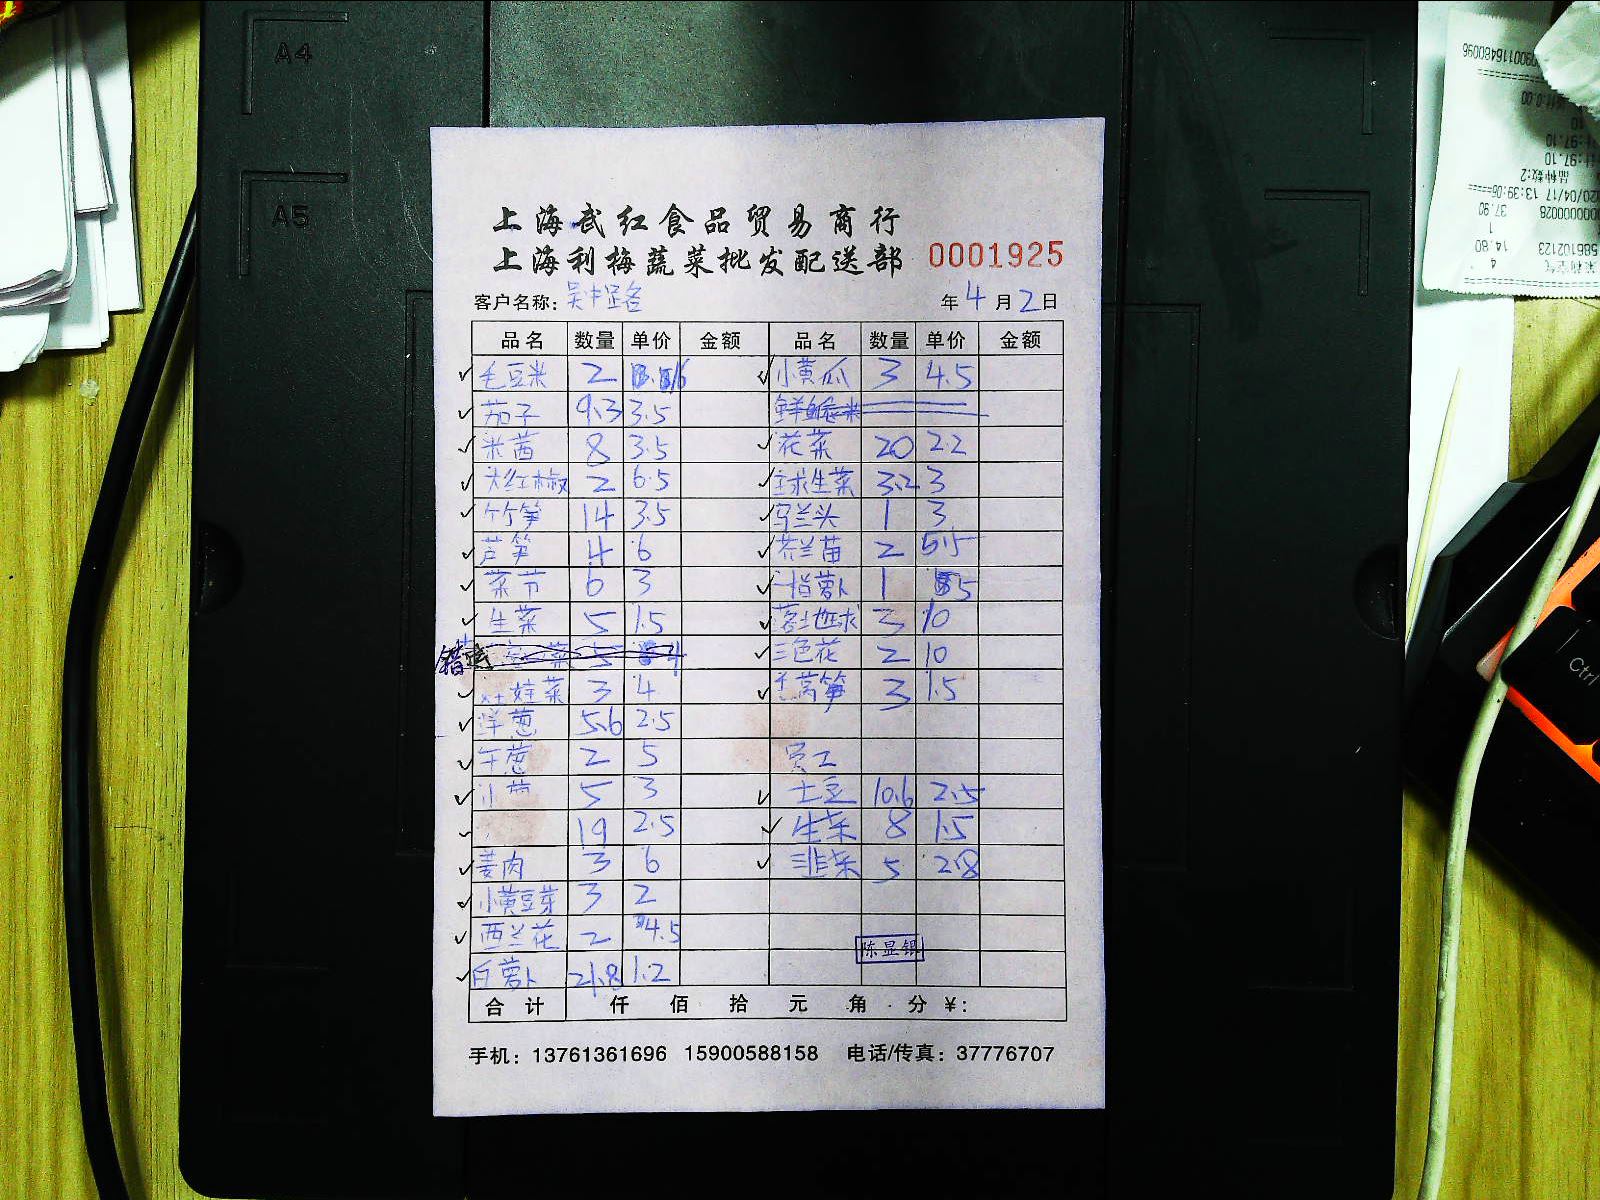 A4
A5
上海武红食品贸易商行
上海利梅蔬菜批发配送部 0001925
客户名称: 吴中路 年 4 月 2 日
品名 数量 单价 金额 品名 数量 单价 金额
毛豆米 2 16 小黄瓜 3 4.5
茄子 9.3 3.5
米茜 8 3.5 花菜 20 2.2
大红椒 2 6.5 球生菜 3.2 3
竹笋 14 3.5 马兰头 1 3
芦笋 4 6 芥兰苗 2 5.5
菜节 6 3 指萝卜 1 5
生菜 5 1.5 3 10
错 菜 5 4 三色花 2 10
娃娃菜 3 4 莴笋 3 1.5
洋葱 5.6 2.5
午葱 2 5 员工
小茴 5 3 土豆 10.6 2.5
19 2.5 生菜 8 1.5
姜肉 3 6 韭菜 5 2.8
小黄豆芽 3 2
西兰花 2 4.5
陈显银
白萝卜 21.8 1.2
合计 仟 佰 拾 元 角 分 ¥:
手机: 13761361696 15900588158 电话/传真: 37776707
Ctrl